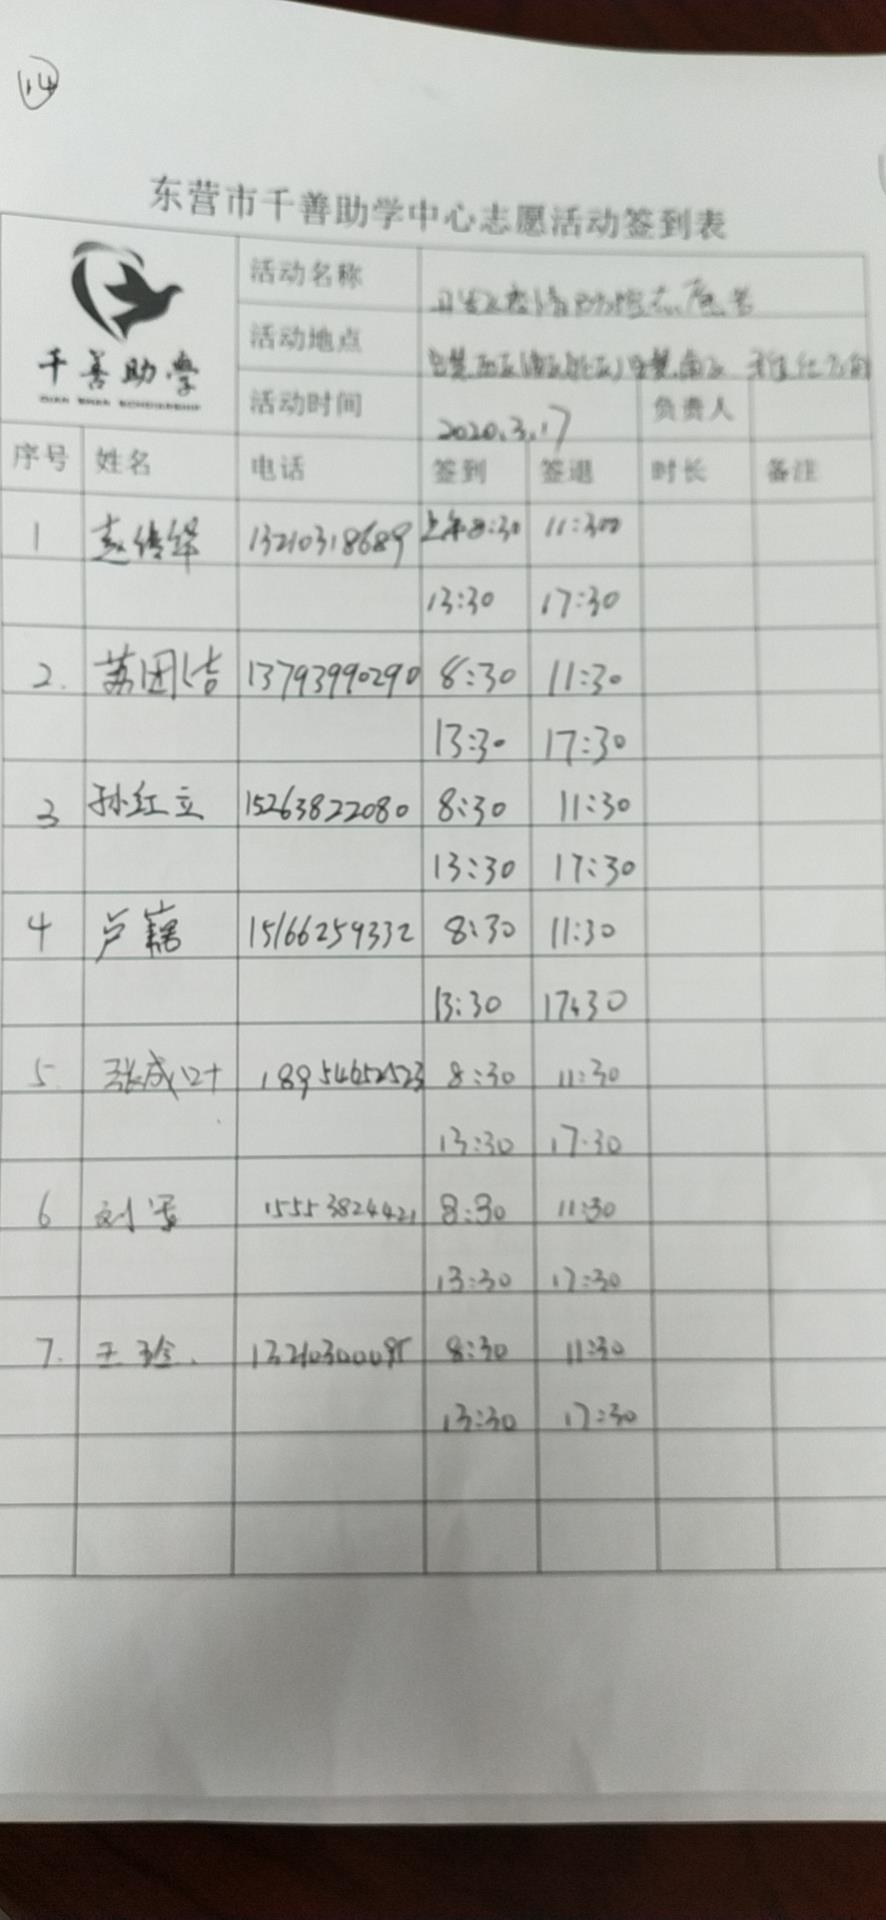 14
东营市千善助学中心志愿活动签到表
千善助学
QIAN SHAN SCHOLARSHIP
活动名称 疫情防控志愿者
活动地点
活动时间 2020.3.17 负责人
序号 姓名 电话 签到 签退 时长 备注
1 赵 13210318689 上午8:30 11:30
13:30 17:30
2. 苏团结 13793990290 8:30 11:30
13:30 17:30
3 孙红立 15263822080 8:30 11:30
13:30 17:30
4 卢 15166259332 8:30 11:30
13:30 17:30
5 张成叶 18954652523 8:30 11:30
13:30 17:30
6 刘军 15553824421 8:30 11:30
13:30 17:30
7. 王珍 8:30 11:30
13:30 17:30